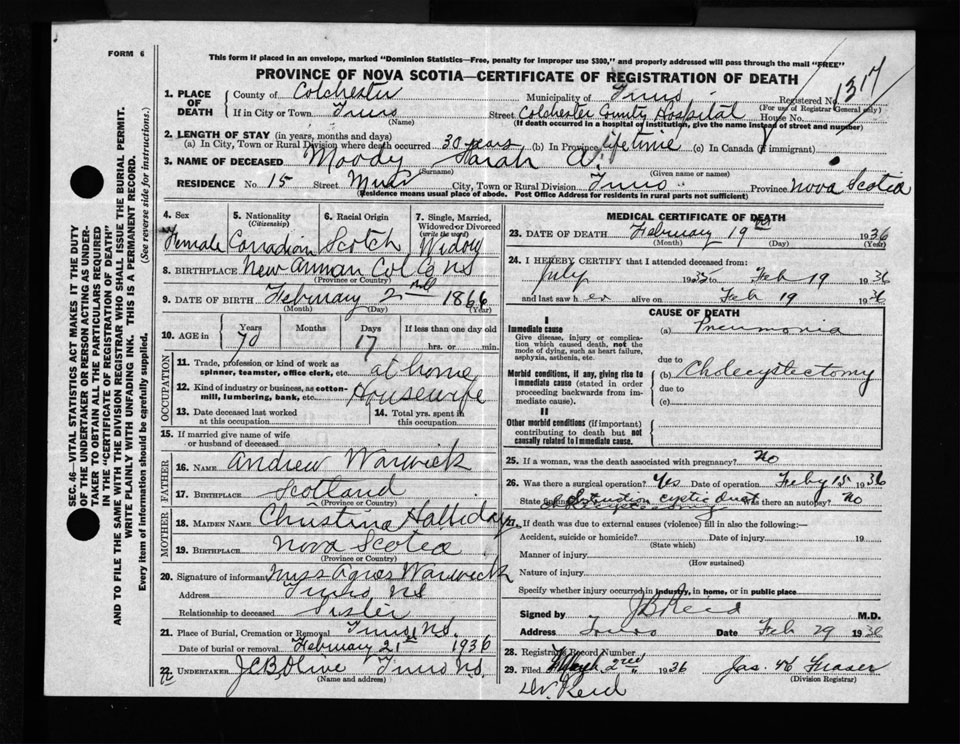 FORM 6
This form if placed in an envelope, marked "Dominion Statistics—Free, penalty for improper use $300," and properly addressed will pass through the mail "FREE"
PROVINCE OF NOVA SCOTIA—CERTIFICATE OF REGISTRATION OF DEATH
1317
1. PLACE OF DEATH County of Colchester Municipality of Truro Registered No. (For use of Registrar General only)
If in City or Town Truro (Name) Street Colchester County Hospital House No.
(If death occurred in a hospital or institution, give the name instead of street and number)
2. LENGTH OF STAY (in years, months and days)
(a) In City, Town or Rural Division where death occurred 30 years (b) In Province lifetime (c) In Canada (if immigrant)
3. NAME OF DECEASED Moody Sarah A.
(Surname) (Given name or names)
RESIDENCE No. 15 Street Muir City, Town or Rural Division Truro Province Nova Scotia
(Residence means usual place of abode. Post Office Address for residents in rural parts not sufficient)
SEC. 46—VITAL STATISTICS ACT MAKES IT THE DUTY
OF THE UNDERTAKER OR PERSON ACTING AS UNDER-
TAKER TO OBTAIN ALL THE PARTICULARS REQUIRED
IN THE "CERTIFICATE OF REGISTRATION OF DEATH"
AND TO FILE THE SAME WITH THE DIVISION REGISTRAR WHO SHALL ISSUE THE BURIAL PERMIT.
WRITE PLAINLY WITH UNFADING INK. THIS IS A PERMANENT RECORD.
Every item of information should be carefully supplied. (See reverse side for instructions.)
4. Sex 5. Nationality (Citizenship) 6. Racial Origin 7. Single, Married, Widowed or Divorced (write the word)
Female Canadian Scotch Widow
8. BIRTHPLACE New Annan Col Co N S
(Province or Country)
9. DATE OF BIRTH February 2nd 1866
(Month) (Day) (Year)
10. AGE in Years Months Days If less than one day old
70 17 hrs. or min.
OCCUPATION
11. Trade, profession or kind of work as spinner, teamster, office clerk, etc. at home
12. Kind of industry or business, as cotton-mill, lumbering, bank, etc. Housewife
13. Date deceased last worked at this occupation 14. Total yrs. spent in this occupation
15. If married give name of wife or husband of deceased
FATHER
16. NAME Andrew Warwick
17. BIRTHPLACE Scotland
(Province or Country)
MOTHER
18. MAIDEN NAME Christina Halliday
19. BIRTHPLACE Nova Scotia
(Province or Country)
20. Signature of informant Miss Agnes Warwick
Address Truro, N S
Relationship to deceased Sister
21. Place of Burial, Cremation or Removal Truro N.S.
Date of burial or removal February 21st 1936
22. UNDERTAKER J C B Olive Truro N.S.
(Name and address)
MEDICAL CERTIFICATE OF DEATH
23. DATE OF DEATH February 19th 1936
(Month) (Day) (Year)
24. I HEREBY CERTIFY that I attended deceased from:
July 1935 to Feb 19 1936
and last saw her alive on Feb 19 1936
CAUSE OF DEATH
I
Immediate cause (a) Pneumonia
Give disease, injury or complication which caused death, not the mode of dying, such as heart failure, asphyxia, asthenia, etc.
due to
Morbid conditions, if any, giving rise to immediate cause (stated in order proceeding backwards from immediate cause). (b) Cholecystectomy
due to
(c)
II
Other morbid conditions (if important) contributing to death but not causally related to immediate cause.
25. If a woman, was the death associated with pregnancy? No
26. Was there a surgical operation? Yes Date of operation Feby 15 1936
State findings Obstruction cystic duct Was there an autopsy? No
27. If death was due to external causes (violence) fill in also the following:—
Accident, suicide or homicide? Date of injury 19
(State which)
Manner of injury
(How sustained)
Nature of injury
Specify whether injury occurred in industry, in home, or in public place
Signed by J B Reid M.D.
Address Truro Date Feb 29 1936
28. Registrar's Record Number
29. Filed March 2nd 1936 Jas. W Fraser
(Division Registrar)
Dr. Reid